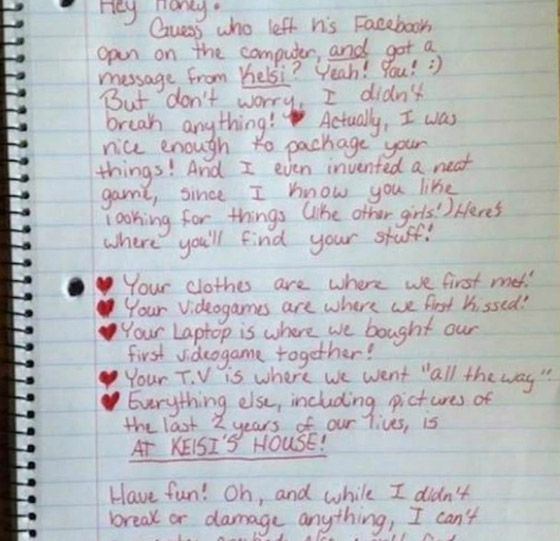 Hey Honey.
Guess who left his Facebook
open on the computer, and got a
message from Kelsi? Yeah! You! :)
But don't worry, I didn't
break anything! ♥ Actually, I was
nice enough to package your
things! And I even invented a neat
game, since I know you like
looking for things (like other girls!) Here's
where you'll find your stuff!
♥ Your clothes are where we first met!
♥ Your Videogames are where we first kissed!
♥ Your Laptop is where we bought our
first videogame together!
♥ Your T.V is where we went "all the way"
♥ Everything else, including pictures of
the last 2 years of our lives, is
AT KElSI'S HOUSE!
Have fun! Oh, and while I didn't
break or damage anything, I can't